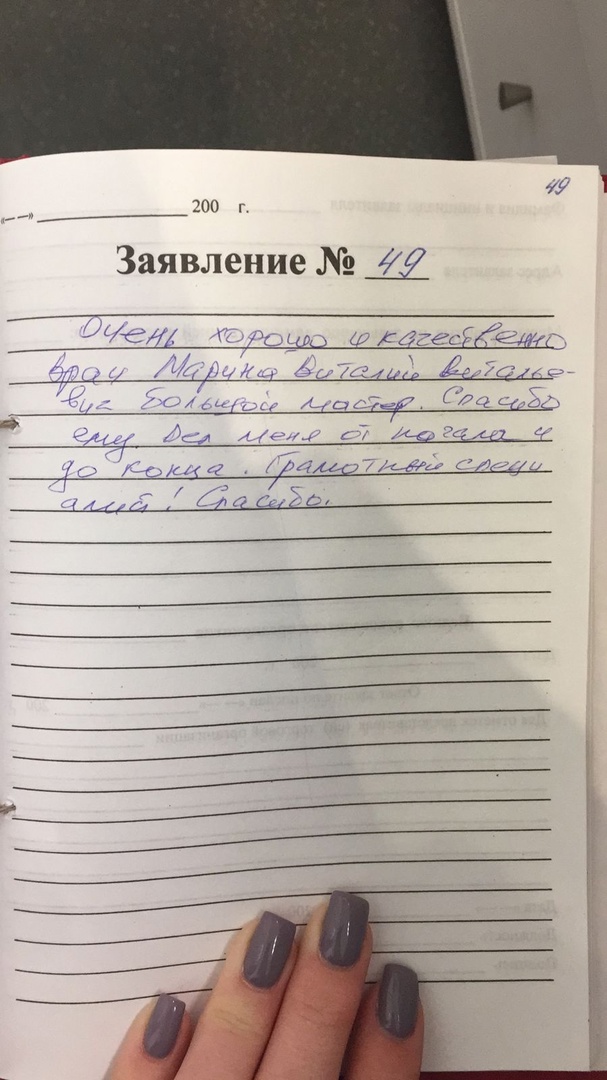 49
«— —» ____________ 200 г.
Заявление № 49
Очень хорошо и качественно
врач Марина Виталий Виталье-
вич большой мастер. Спасибо
ему. Вел меня от начала и
до конца. Грамотный специ
алист! Спасибо.